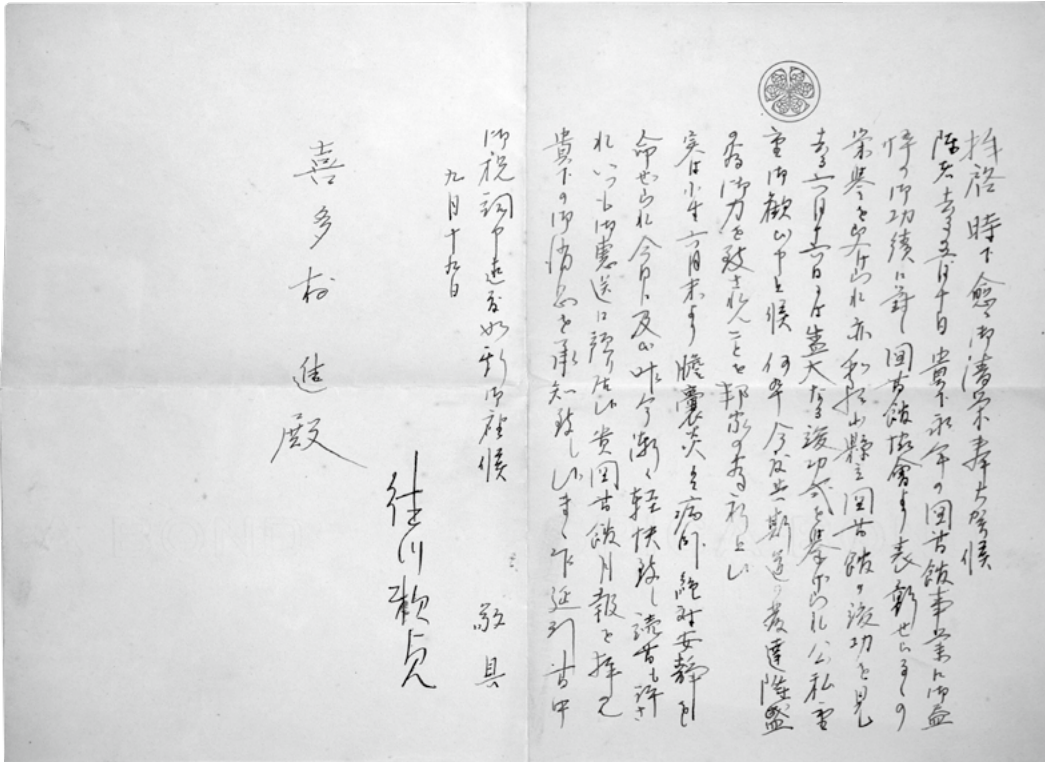 拝啓 時下愈々御清栄奉大賀候
陳者去る五月十日 貴下永年の図書館事業に御尽
悴の御功績に対し 図書館協會より表彰せらるゝの
栄誉を受けられ 亦和歌山縣立図書館の竣功を見
去る六月十六日には盛大なる竣功式を挙げられ 公私重
重御歓び申上候 何卒今後共斯道の発達隆盛
の為御力を致されんことを邦家の為祈上候
実は小生六月末より膽嚢炎にて病臥 絶対安静を
命ぜられ今日に及び 昨今漸く軽快致し 読書も許さ
れ いつも御恵送に預り居候貴図書館月報を拝見
貴下の御消息を承知致し候まゝ 乍延引書中
御祝詞申述度如斯御座候
敬具
九月十九日
徳川頼貞
喜多村進殿